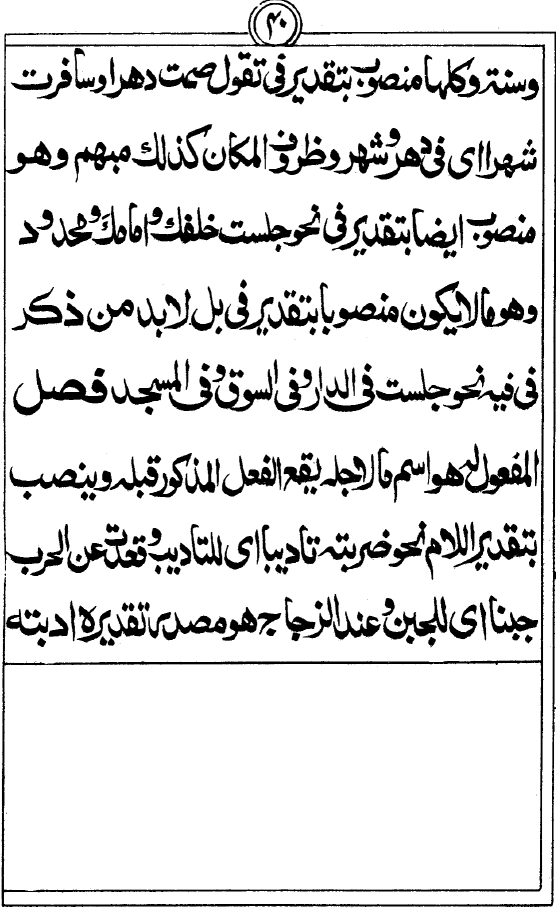 ۴۰
وسنة وكلها منصوب بتقدير في تقول صمت دهرا وسافرت
شهرا اى في دهر وشهر وظروف المكان كذلك مبهم وهو
منصوب ايضا بتقدير في نحو جلست خلفك وامامك ومحدود
وهو ما لا يكون منصوبا بتقدير في بل لا بد من ذكر
في فيه نحو جلست في الدار وفي السوق وفي المسجد فصل
المفعول له هو اسم ما لاجله يقع الفعل المذكور قبله وينصب
بتقدير اللام نحو ضربته تاديبا اى للتاديب وقعدت عن الحرب
جبنا اى للجبن وعند الزجاج هو مصدر تقديره ادبته